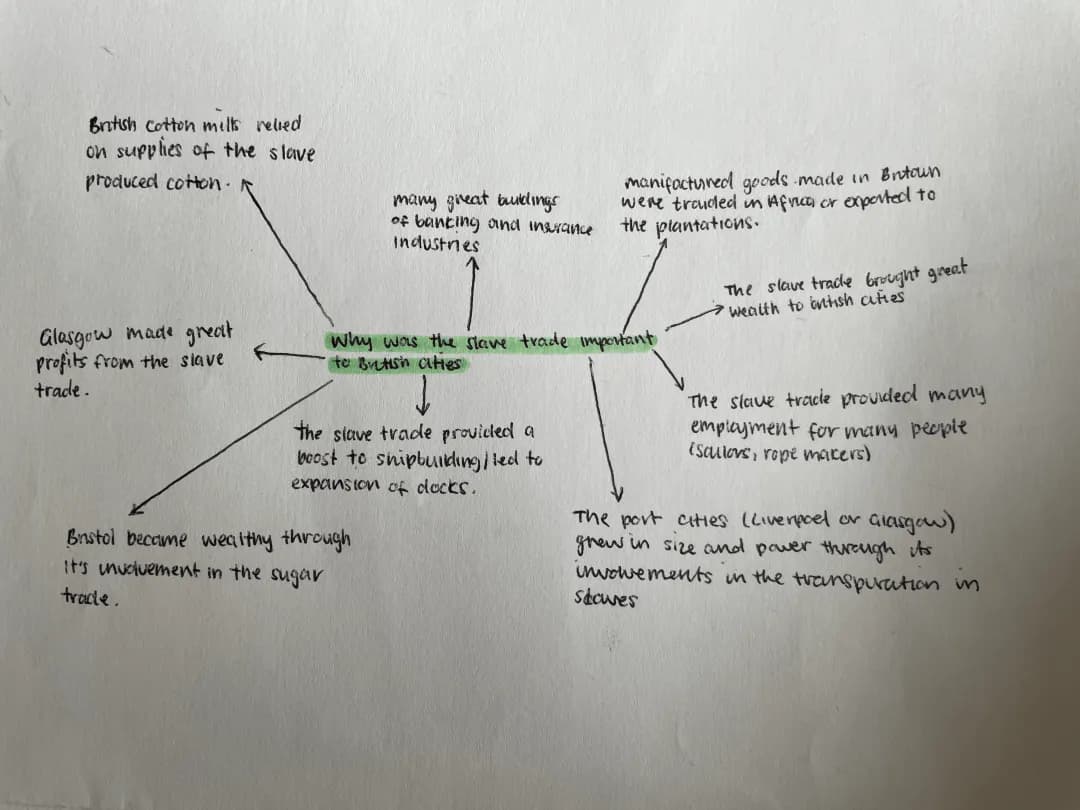 British cotton mills relied
on supplies of the slave
produced cotton.
many great buildings
of banking and insurance
industries
manifactured goods made in Britain
were traided in Africa or exported to
the plantations.
The slave trade brought great
wealth to british cities
Glasgow made great
profits from the slave
trade.
Why was the slave trade important
to British cities
The slave trade provided many
employment for many people
(sailors, rope makers)
The slave trade provided a
boost to shipbuilding/led to
expansion of docks.
Bristol became wealthy through
it's involvement in the sugar
trade.
The port cities (Liverpool or Glasgow)
grew in size and power through its
involvements in the transpuration in